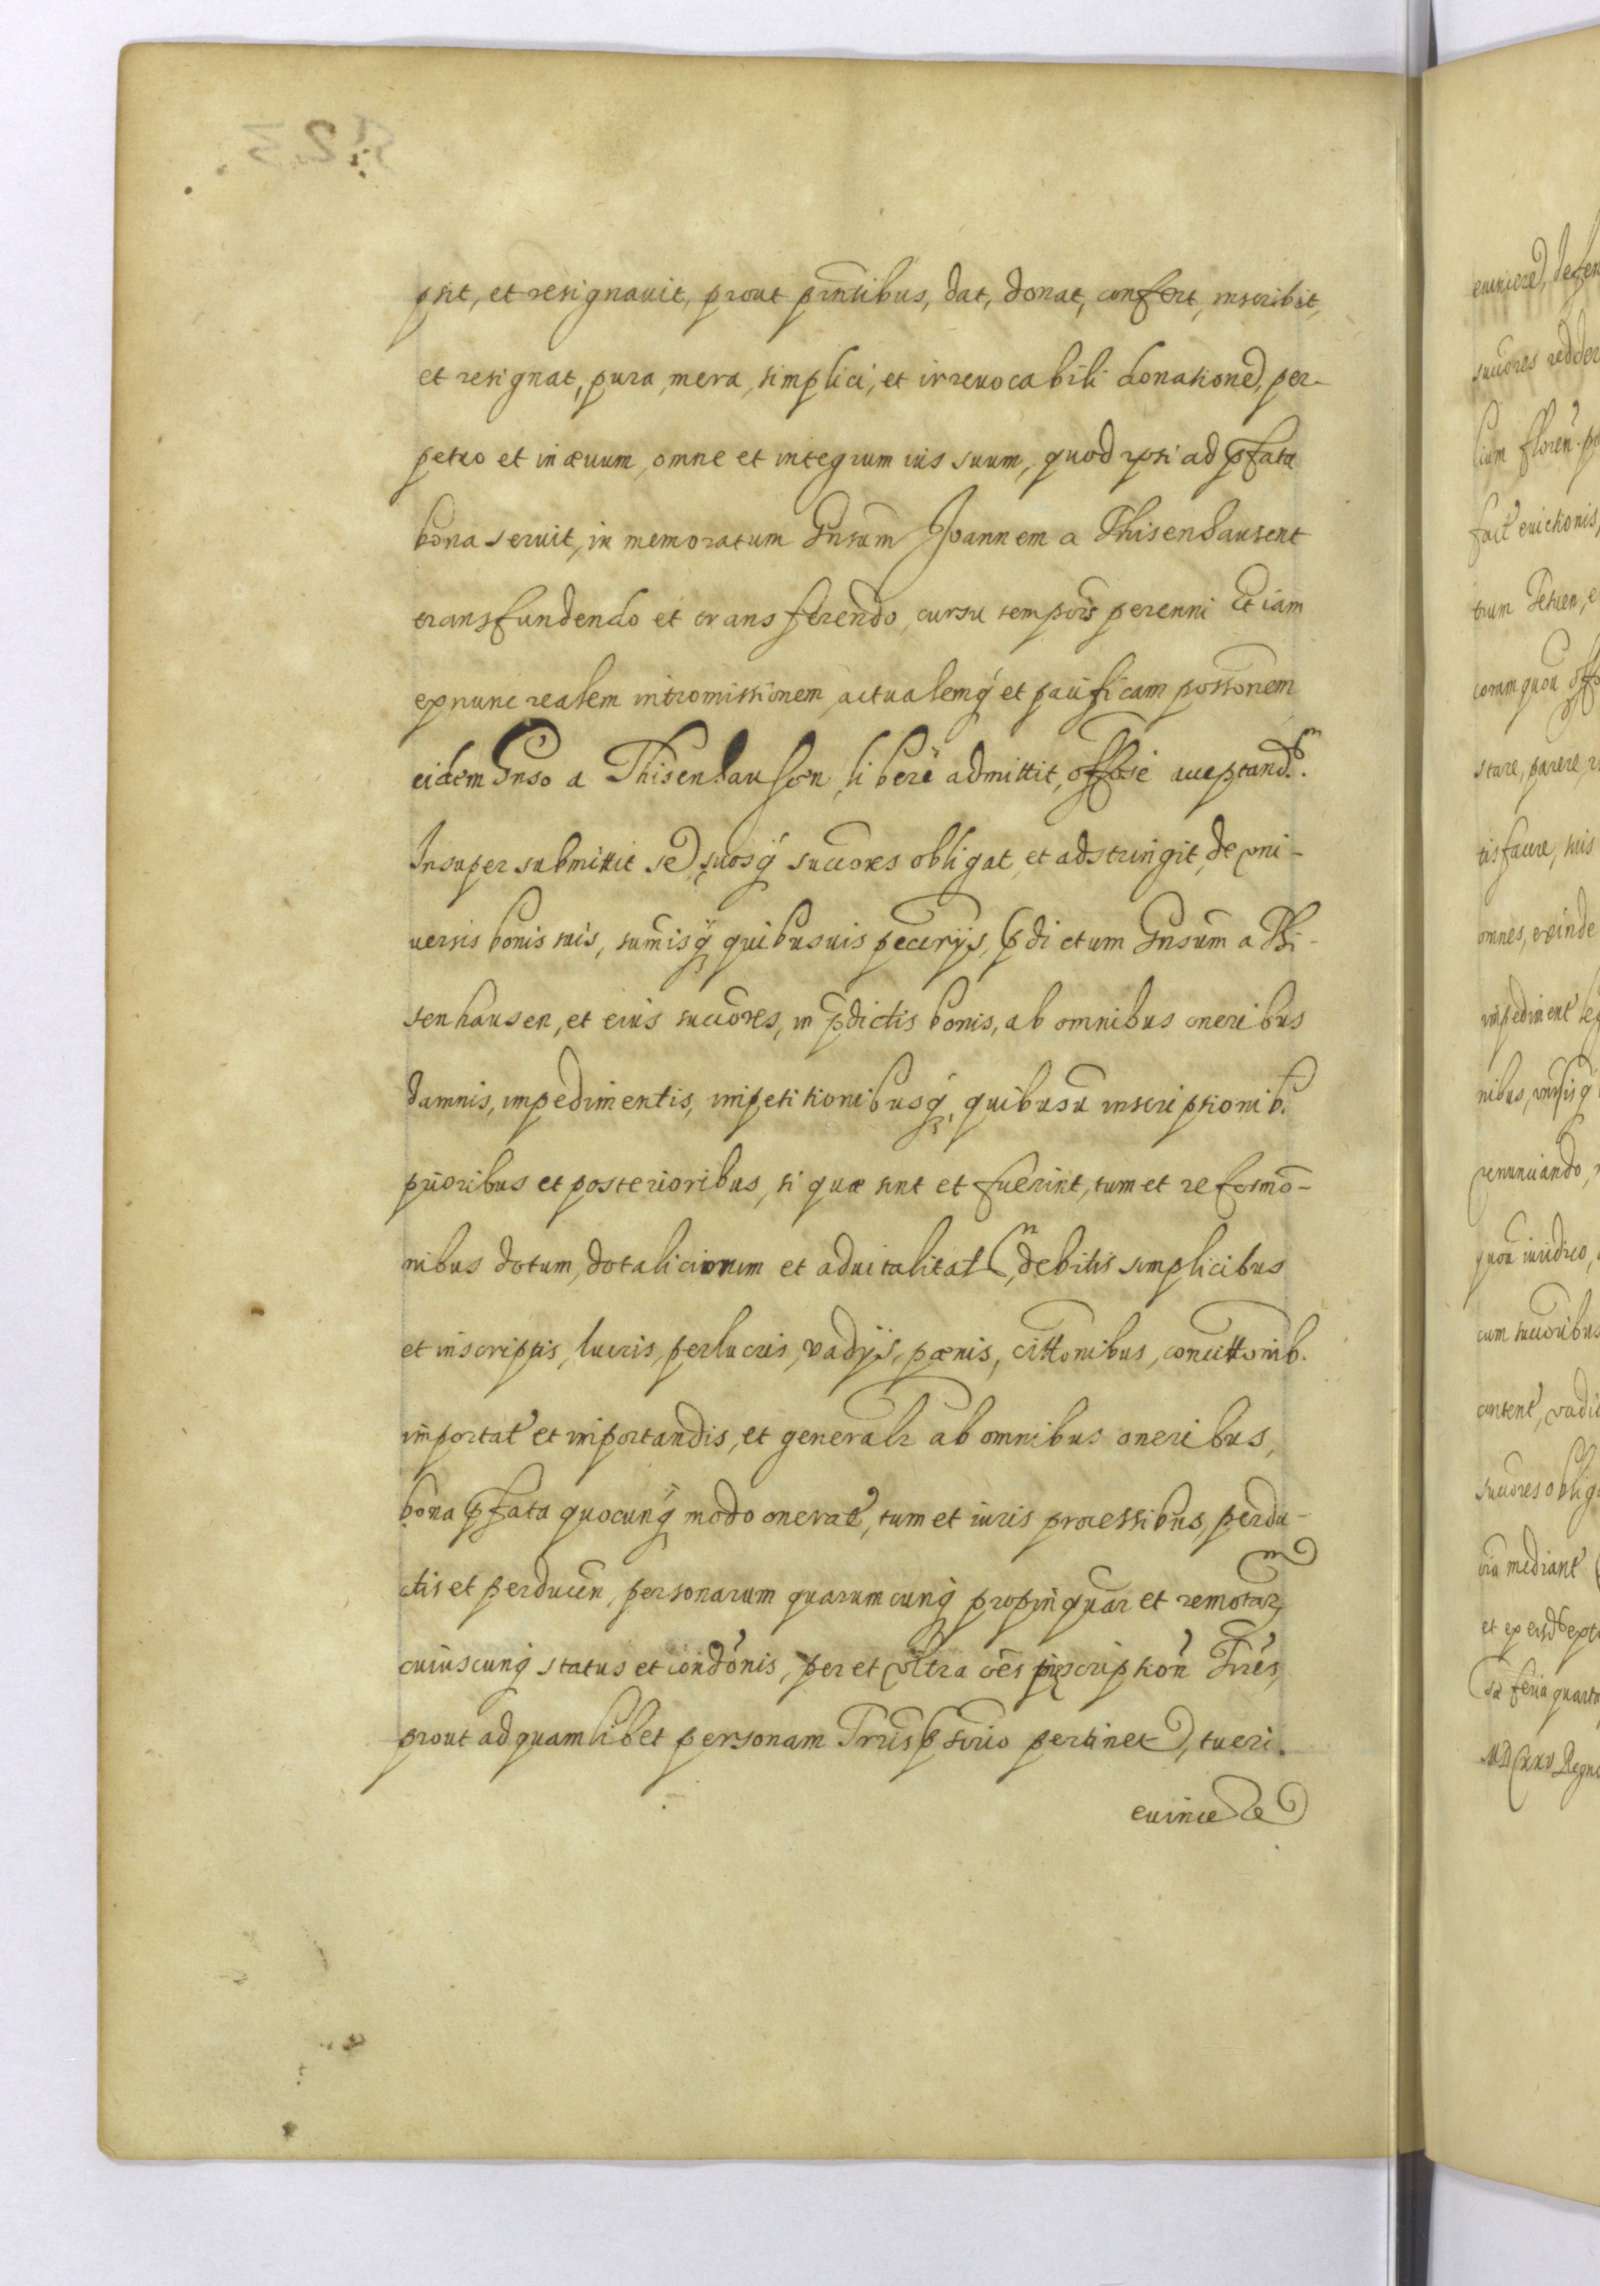 psit, et resignauit, prout prñtibus, dat, donat, confert, inscribit,
et resignat, pura, mera, simplici, et irreuocabili donatione, per-
petuo et in æuum, omne et integrum ius suum, quod ipsi ad pfata
bona seruit, in memoratum Gnsum Joannem a Thisenhausent
transfundendo et transferendo, cursu temporis perenni Et iam
exnunc realem intromissionem actualemq́ et pacificam possonem
eidem Gnso a Thisenhausen, liberè admittit, offose acceptand.
Insuper submittit se suosq́ succores obligat, et adstringit, de vni-
uersis bonis suis, summisq́ quibusuis pecũrijs, pdictum Gnsum a Thi-
senhausen, et eius succores, in pdictis bonis, ab omnibus oneribus
damnis, impedimentis, impetitionibusq́, quibusũ inscriptionib.
prioribus et posterioribus, si quæ sint et fuerint, tum et reformõ-
nibus dotum, dotaliciorum et aduitalitat, debitis simplicibus
et inscriptis, lucris, perlucris, vadijs, pœnis, cittonibus, concittonib.
importat et importandis, et generalr ab omnibus oneribus,
bona pfata quocunq́ modo onerat, tum et iuris processibus, perdu-
ctis et perducen, personarum quarumcunq́ propinquar et remotar,
cuiuscunq́ status et condonis, per et vltra oẽs pscription Trres,
prout ad quamlibet personam Trrus psirio pertinet, tueri.
euincere
523
euincere, defen
succores redder
lium floren. p
fact euictionis,
coram quou offo
stare, parere, r
tisfacere, suis
omnes, exinde
impediment le
renunciando,
quou iuridico,
cum succoribus
content, vadi
succores oblig
mediant
feria quarta
MDCXXV Regn